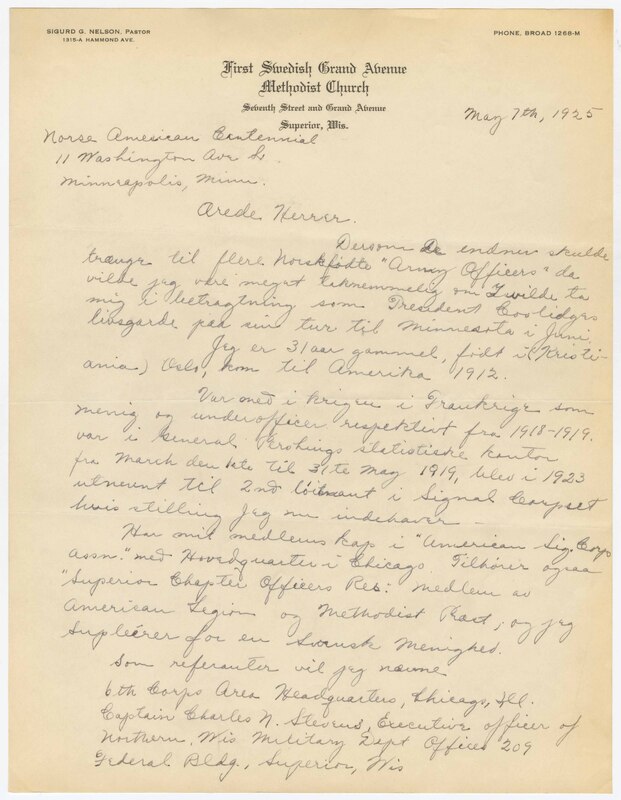 SIGURD G. NELSON, PASTOR
1315-A HAMMOND AVE.
PHONE, BROAD 1268-M
First Swedish Grand Avenue
Methodist Church
Seventh Street and Grand Avenue
Superior, Wis.
May 7th, 1925
Norse American Centennial
11 Washington Ave S.
Minneapolis, Minn.
Ærede Herrer.
Dersom De endnu skulde
trænge til flere Norskfödte "Army Officers" da
vilde jeg være meget taknemmelig om I vilde ta
mig i betragtning som President Coolidges
livsgarde paa sin tur til Minnesota i Juni.
Jeg er 31 aar gammel, födt i (Kristi-
ania) Oslo, kom til Amerika 1912.
Var med i krigen i Frankrige som
menig og underofficer respektivt fra 1918-1919.
var i General Pershings statistiske kontor
fra March den 1ste til 31te May 1919, blev i 1923
utnevnt til 2nd löitnant i Signal Corpset
hvis stilling jeg nu indehaver -
Har mit medlemskap i "American Sig. Corp
Assn." med Hovedquarter i Chicago. Tilhörer ogsaa
"Superior Chapter Officers Res: medlem av
American Legion og Methodist Præst, og jeg
supleèrer for en Svensk Menighed.
Som referanter vil jeg nævne
6th Corps Area Headquarters, Chicago, Ill.
Captain Charles N. Stevens, Executive officer of
Northern, Wis Military Dept Offices 209
Federal Bldg., Superior, Wis